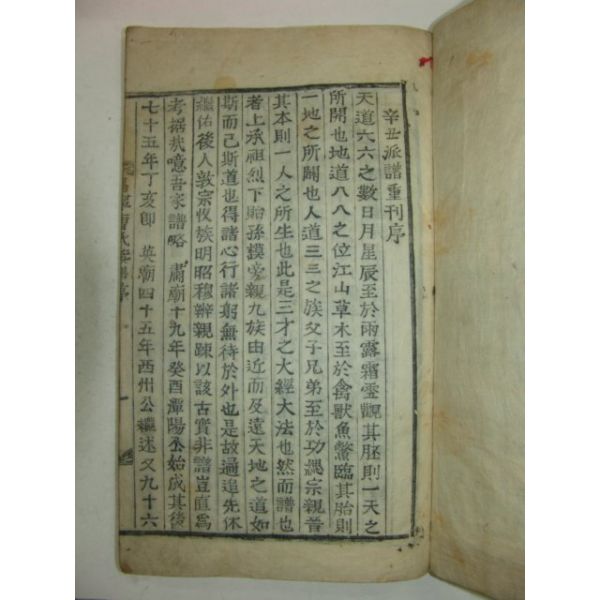 辛丑派譜重刊序
天道六六之數日月星辰至於雨露霜雪觀其胚則一天之
所開也地道八八之位江山草木至於禽獸魚鱉臨其胎則
一地之所闢也人道三三之族父子兄弟至於功緦宗親普
其本則一人之所生也此是三才之大經大法也然而譜也
者上承祖烈下貽孫謨愛親九族由近而及遠天地之道如
斯而已斯道也得諸心行諸躬無待於外也是故過追先休
繼佑後人敦宗收族明昭穆辨親疎以該古實非譜豈直爲
考据哉噫吾家譜略 肅廟十九年癸酉潭陽公始成其後
七十五年丁亥卽 英廟四十五年西州公繼述又九十六
曺氏譜序